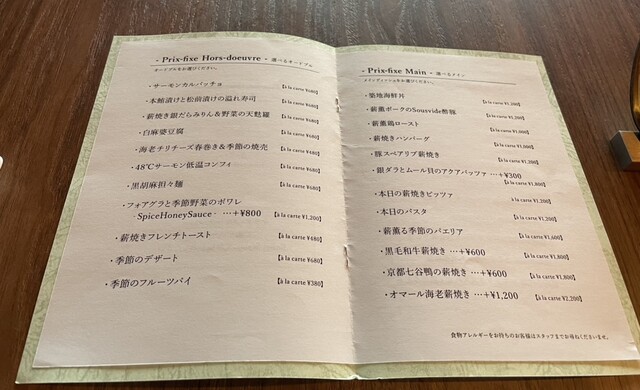 - Prix-fixe Hors-doeuvre - 選べるオードブル
オードブルをお選びください。
・サーモンカルパッチョ 【à la carte ¥680】
・本鮪漬けと松前漬けの溢れ寿司 【à la carte ¥680】
・薪焼き銀だらみりん&野菜の天麩羅 【à la carte ¥680】
・白麻婆豆腐 【à la carte ¥680】
・海老チリチーズ春巻き&季節の焼売 【à la carte ¥680】
・48℃サーモン低温コンフィ 【à la carte ¥680】
・黒胡麻担々麺 【à la carte ¥680】
・フォアグラと季節野菜のポワレ
-SpiceHoneySauce- …+¥800 【à la carte ¥1,200】
・薪焼きフレンチトースト 【à la carte ¥480】
・季節のデザート 【à la carte ¥680】
・季節のフルーツパイ 【à la carte ¥380】
- Prix-fixe Main - 選べるメイン
メインディッシュをお選びください。
・築地海鮮丼 【à la carte ¥1,200】
・薪薫ポークのSousvide酢豚 【à la carte ¥1,200】
・薪薫鶏ロースト 【à la carte ¥1,000】
・薪焼きハンバーグ 【à la carte ¥1,200】
・豚スペアリブ薪焼き 【à la carte ¥1,200】
・銀ダラとムール貝のアクアパッツァ …+¥300
【à la carte ¥1,800】
・本日の薪焼きピッツァ 【à la carte ¥1,200】
・本日のパスタ 【à la carte ¥1,200】
・薪薫る季節のパエリア 【à la carte ¥1,600】
・黒毛和牛薪焼き …+¥600 【à la carte ¥1,800】
・京都七谷鴨の薪焼き …+¥600 【à la carte ¥1,800】
・オマール海老薪焼き …+¥1,200 【à la carte ¥2,200】
食物アレルギーをお持ちのお客様はスタッフまでお尋ねくださいませ。